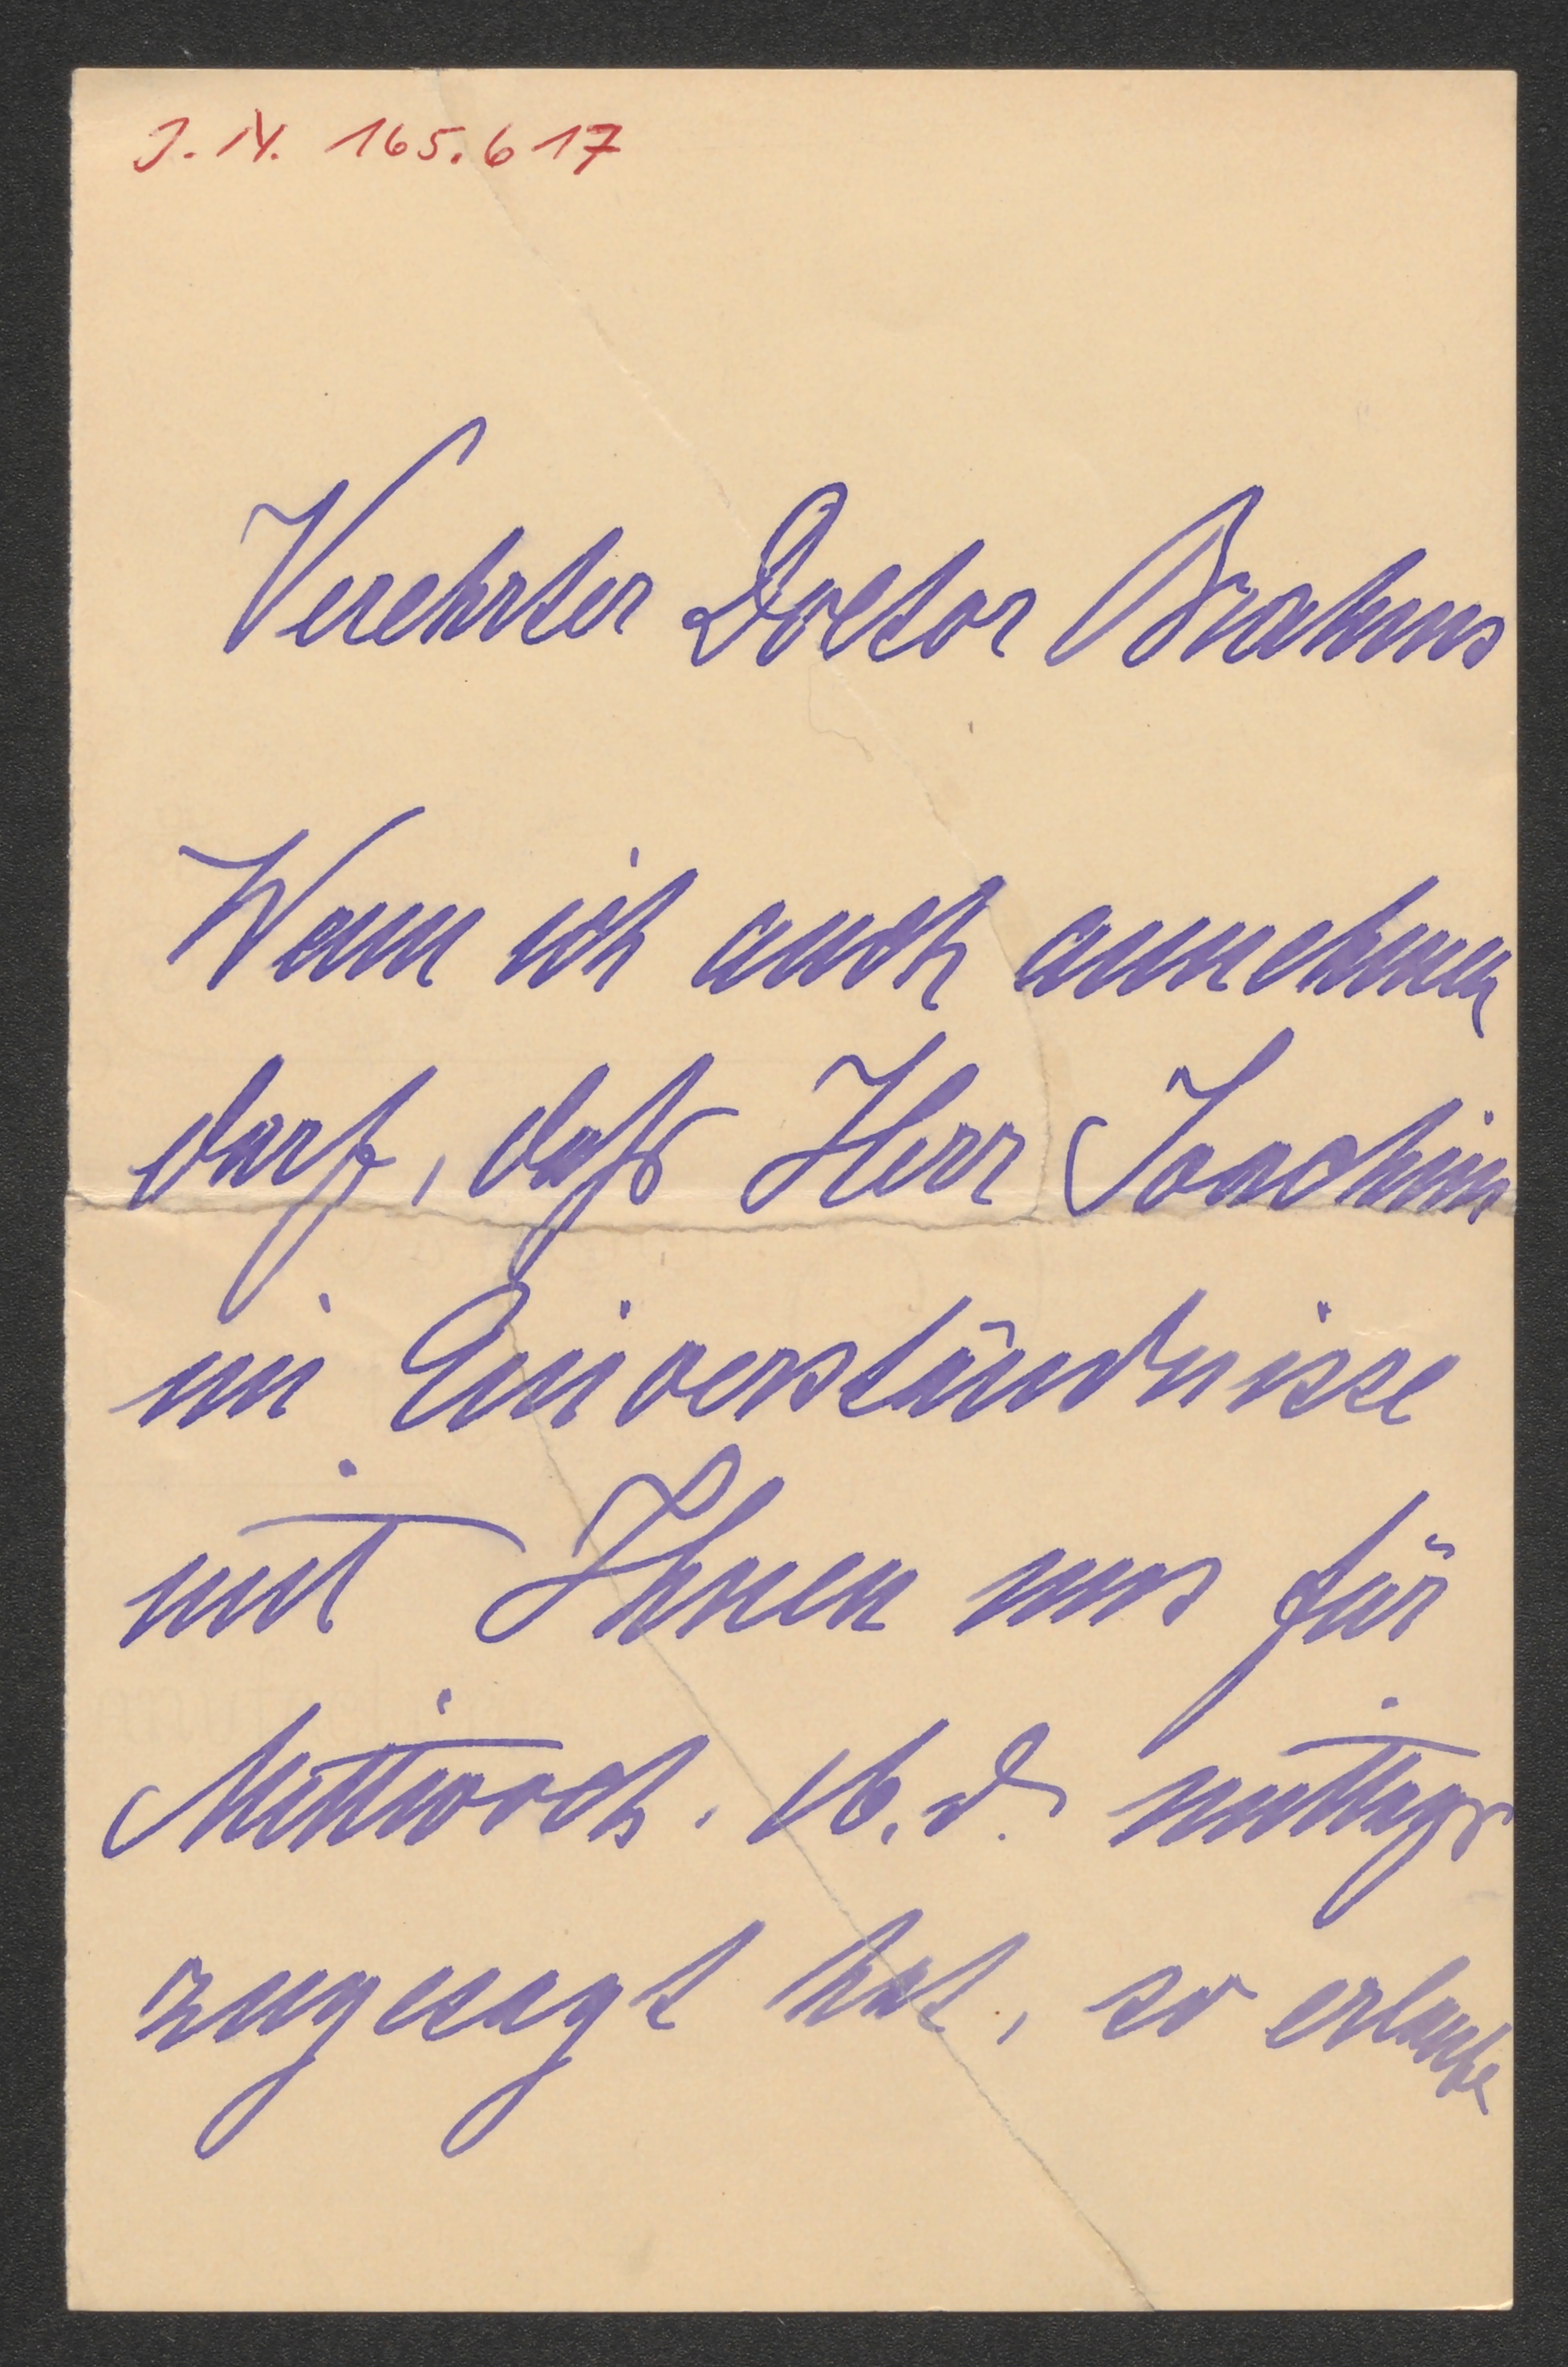 J. N. 165.617
Verehrter Doctor Brahms
Wenn ich auch annehmen
darf, daß Herr Joachim
im Einverständnisse
mit Ihnen uns für
Mittwoch. 16. d. mittags
zugesagt hat, so erlaube